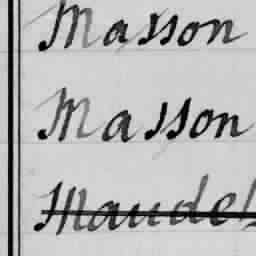 Masson
Masson
Maudet